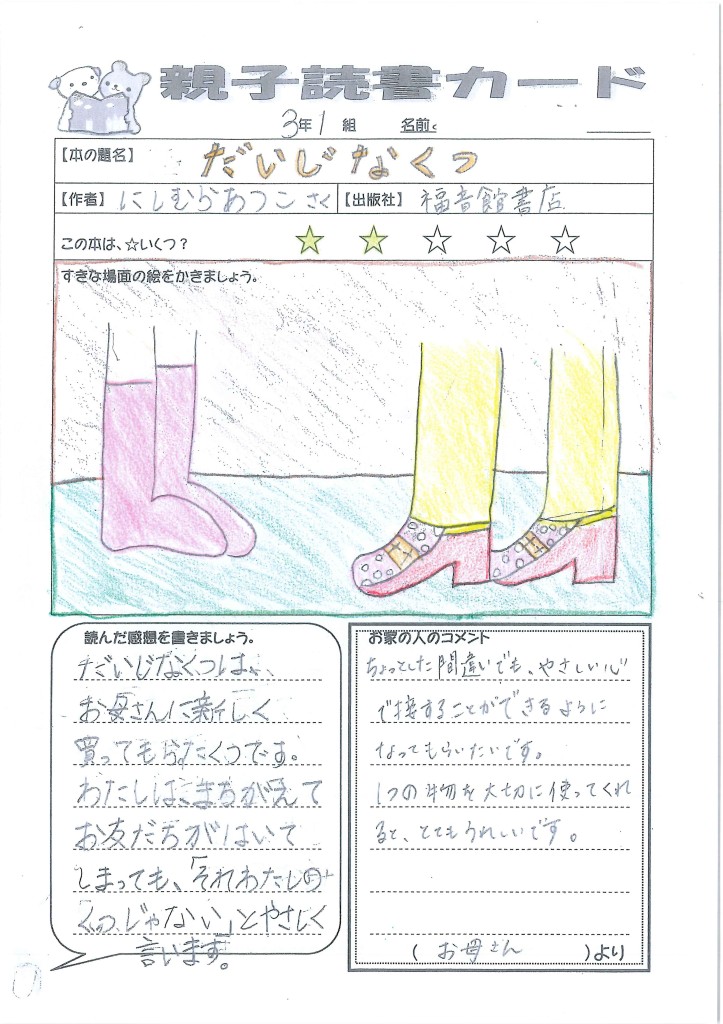 親子読書カード
3年1組 名前
【本の題名】 だいじなくつ
【作者】 にしむらあつこ さく 【出版社】 福音館書店
この本は、☆いくつ？ ☆ ☆ ☆ ☆ ☆
すきな場面の絵をかきましょう。
読んだ感想を書きましょう。
だいじなくつは、
お母さんに新しく
買ってもらったくつです。
わたしは、まちがえて
お友だちがはいて
しまっても、「それわたしの
くつじゃない」とやさしく
言います。
お家の人のコメント
ちょっとした間違いでも、やさしい心
で接することができるように
なってもらいたいです。
1つの物を大切に使ってくれ
ると、とてもうれしいです。
(お母さん)より